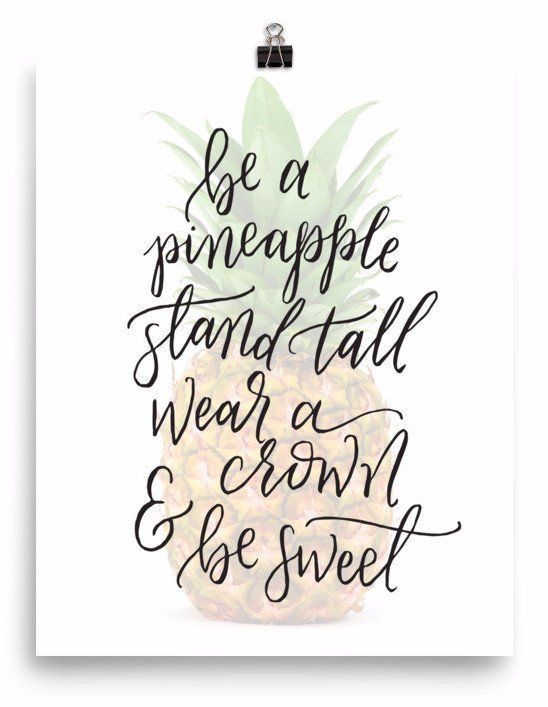 be a
pineapple
stand tall
wear a
crown
& be sweet